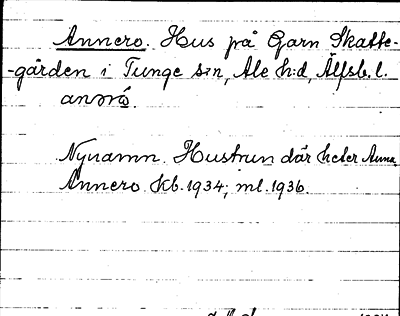 Annero. Hus på Garn Skatte-
-gården i Tunge s:n, Ale h:d, Älfsb. l.
Nynamn. Hustrun där heter Anna.
Annero. Kb. 1934; ml. 1936.